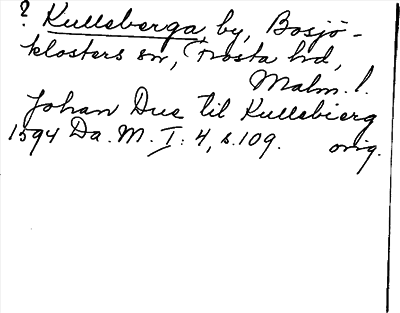 ? Kullaberga, by, Bosjö-
klosters sn, Frosta hd,
Malm. l.
Johan Due til Kullsbierg
1594 Da. M. I: 4, s. 109. orig.